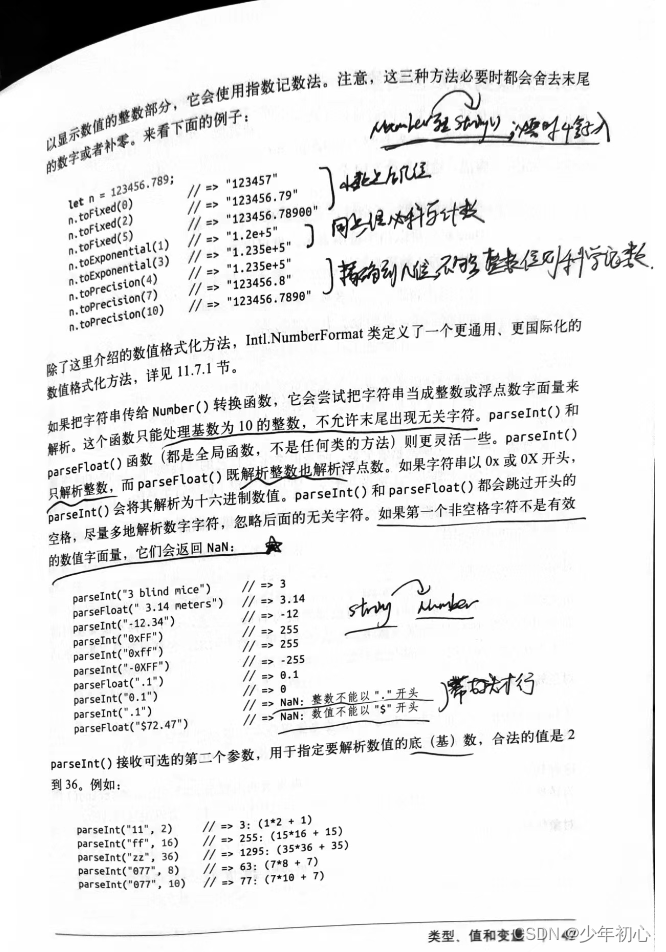 以显示数值的整数部分，它会使用指数记数法。注意，这三种方法必要时都会舍去末尾
的数字或者补零。来看下面的例子：
Number至String()，必要时4舍5入
let n = 123456.789;
n.toFixed(0) // => "123457"
n.toFixed(2) // => "123456.79"
n.toFixed(5) // => "123456.78900"
n.toExponential(1) // => "1.2e+5"
n.toExponential(3) // => "1.235e+5"
n.toPrecision(4) // => "1.235e+5"
n.toPrecision(7) // => "123456.8"
n.toPrecision(10) // => "123456.7890"
小数点后几位
同上
科学计数
精确到几位，不够整数位则科学记数.
除了这里介绍的数值格式化方法，Intl.NumberFormat 类定义了一个更通用、更国际化的
数值格式化方法，详见 11.7.1 节。
如果把字符串传给 Number() 转换函数，它会尝试把字符串当成整数或浮点数字面量来
解析。这个函数只能处理基数为 10 的整数，不允许末尾出现无关字符。parseInt() 和
parseFloat() 函数（都是全局函数，不是任何类的方法）则更灵活一些。parseInt()
只解析整数，而 parseFloat() 既解析整数也解析浮点数。如果字符串以 0x 或 0X 开头，
parseInt() 会将其解析为十六进制数值。parseInt() 和 parseFloat() 都会跳过开头的
空格，尽量多地解析数字字符，忽略后面的无关字符。如果第一个非空格字符不是有效
的数值字面量，它们会返回 NaN：
parseInt("3 blind mice") // => 3
parseFloat(" 3.14 meters") // => 3.14
parseInt("-12.34") // => -12
parseInt("0xFF") // => 255
parseInt("0xff") // => 255
parseInt("-0XFF") // => -255
parseFloat(".1") // => 0.1
parseInt("0.1") // => 0
parseInt(".1") // => NaN: 整数不能以 "." 开头
parseFloat("$72.47") // => NaN: 数值不能以 "$" 开头
string Number
parseInt() 接收可选的第二个参数，用于指定要解析数值的底（基）数，合法的值是 2
到 36。例如：
parseInt("11", 2) // => 3: (1*2 + 1)
parseInt("ff", 16) // => 255: (15*16 + 15)
parseInt("zz", 36) // => 1295: (35*36 + 35)
parseInt("077", 8) // => 63: (7*8 + 7)
parseInt("077", 10) // => 77: (7*10 + 7)
类型、值和变
CSDN @少年初心